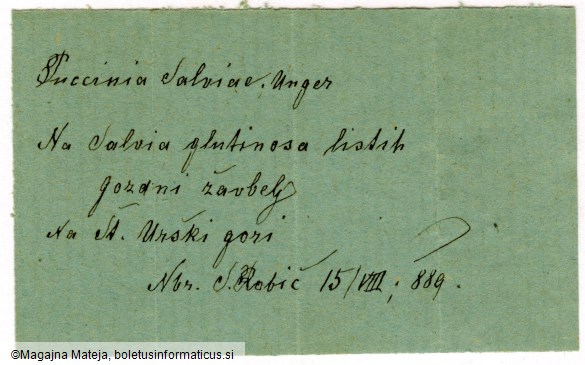 Puccinia Salviae. Unger
Na Salvia glutinosa listih
gozdni žavbelj
Na Št. Urški gori
Nbr. S. Robič 15/VIII; 889.
©Magajna Mateja, boletusinformaticus.si